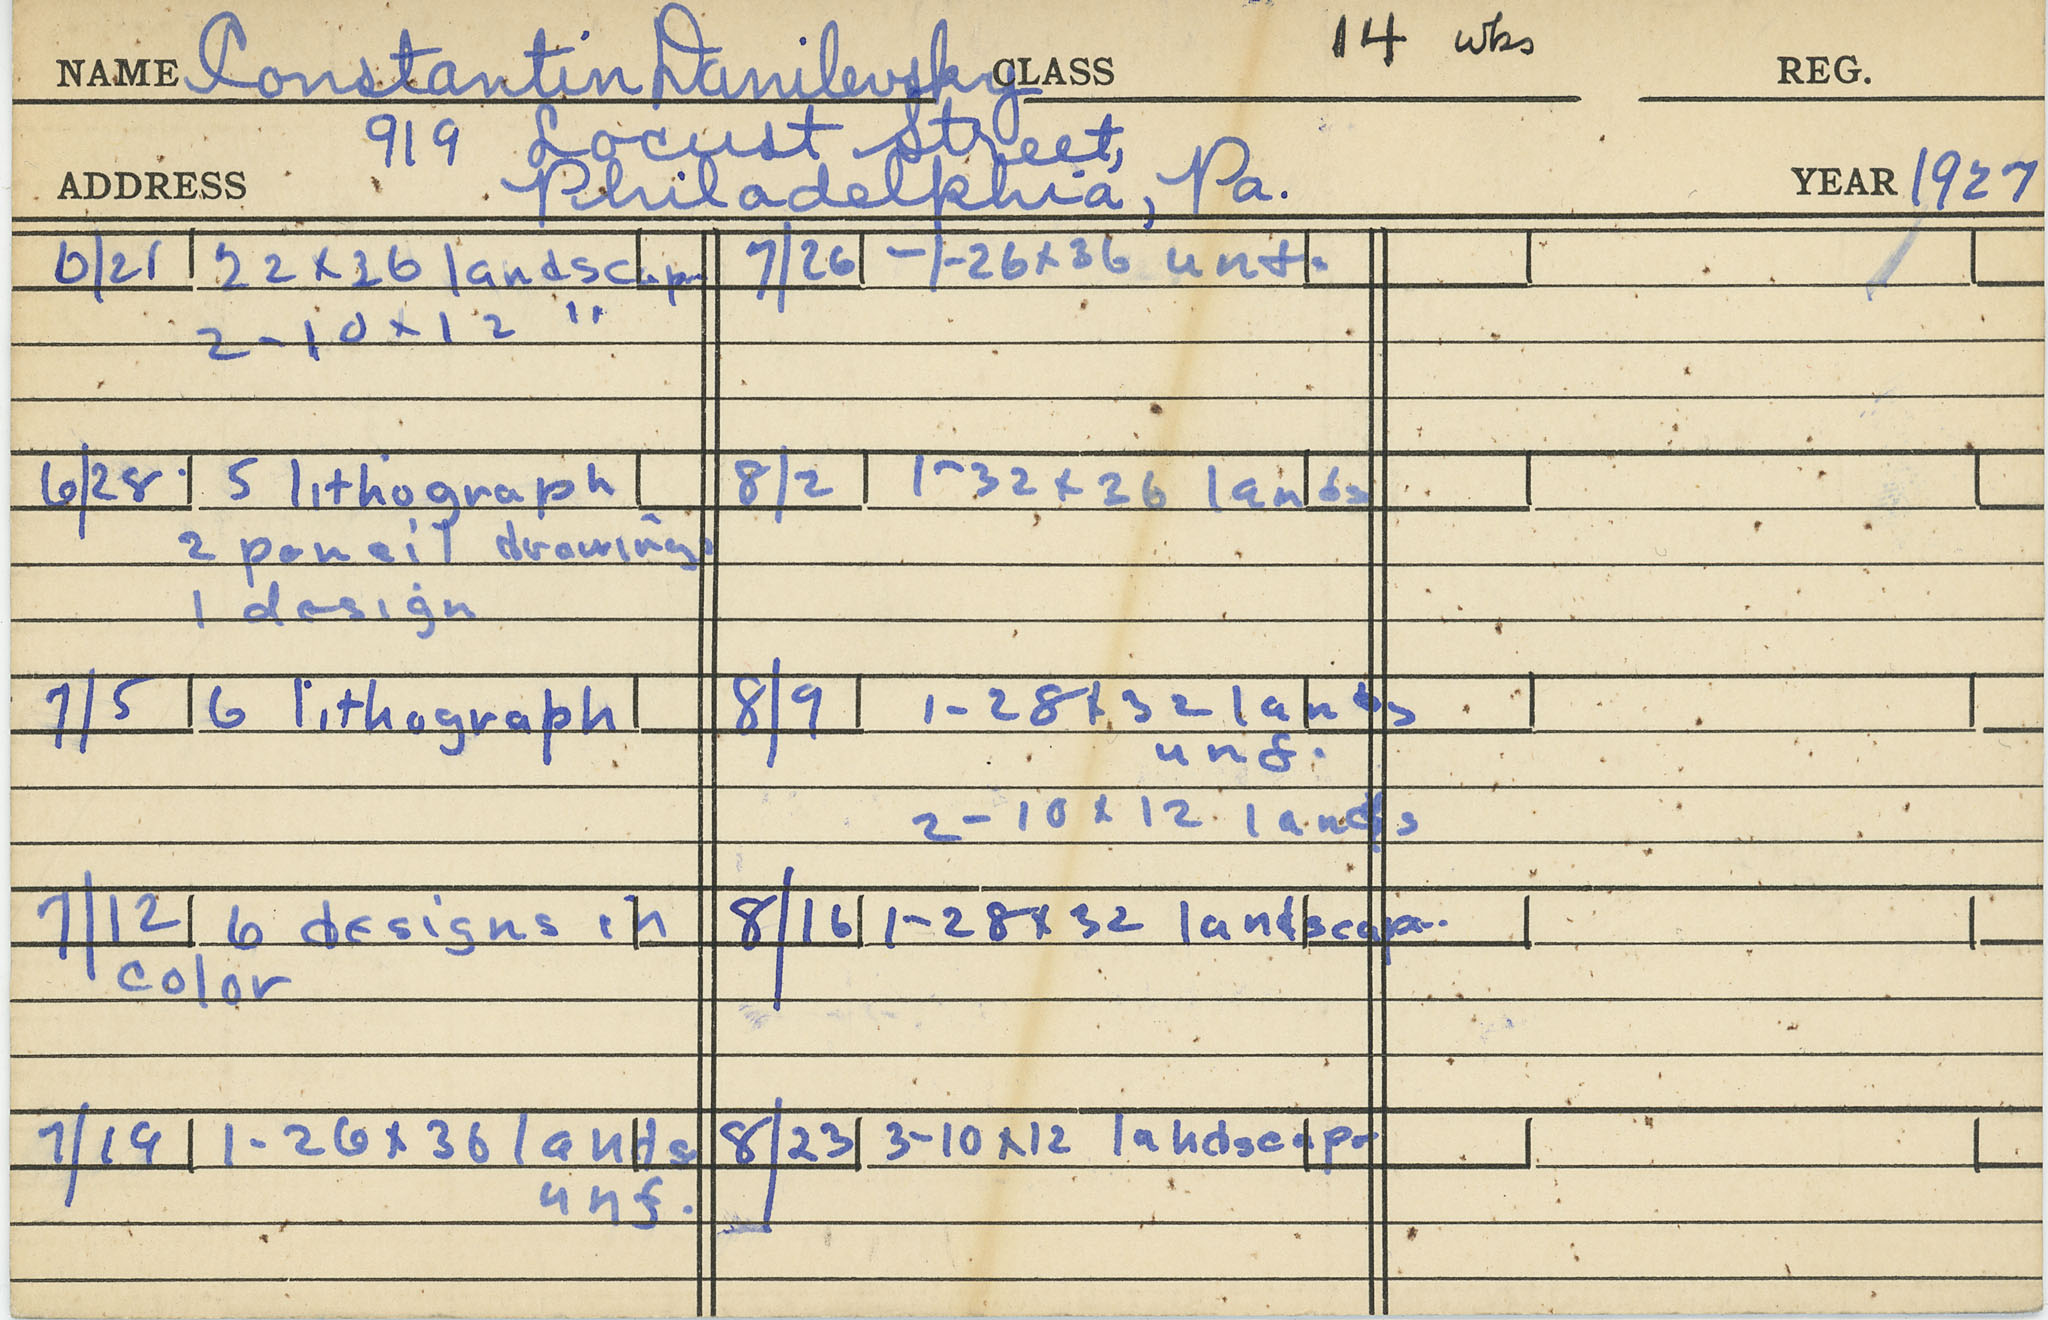 NAME Constantin Danilevsky CLASS 14 wks REG.
919 Locust Street,
ADDRESS Philadelphia, Pa. YEAR 1927
6/21 22x26 landscap.
2-10x12 "
6/28 5 lithograph
2 pencil drawings
1 design
7/5 6 lithograph
7/12 6 designs in
color
7/19 1-26x36 lands
unf.
7/26 -1-26x36 unf.
8/2 1-32x26 lands
8/9 1-28x32 lands
unf.
2-10x12 lands
8/16 1-28x32 landscap.
8/23 3-10x12 landscape